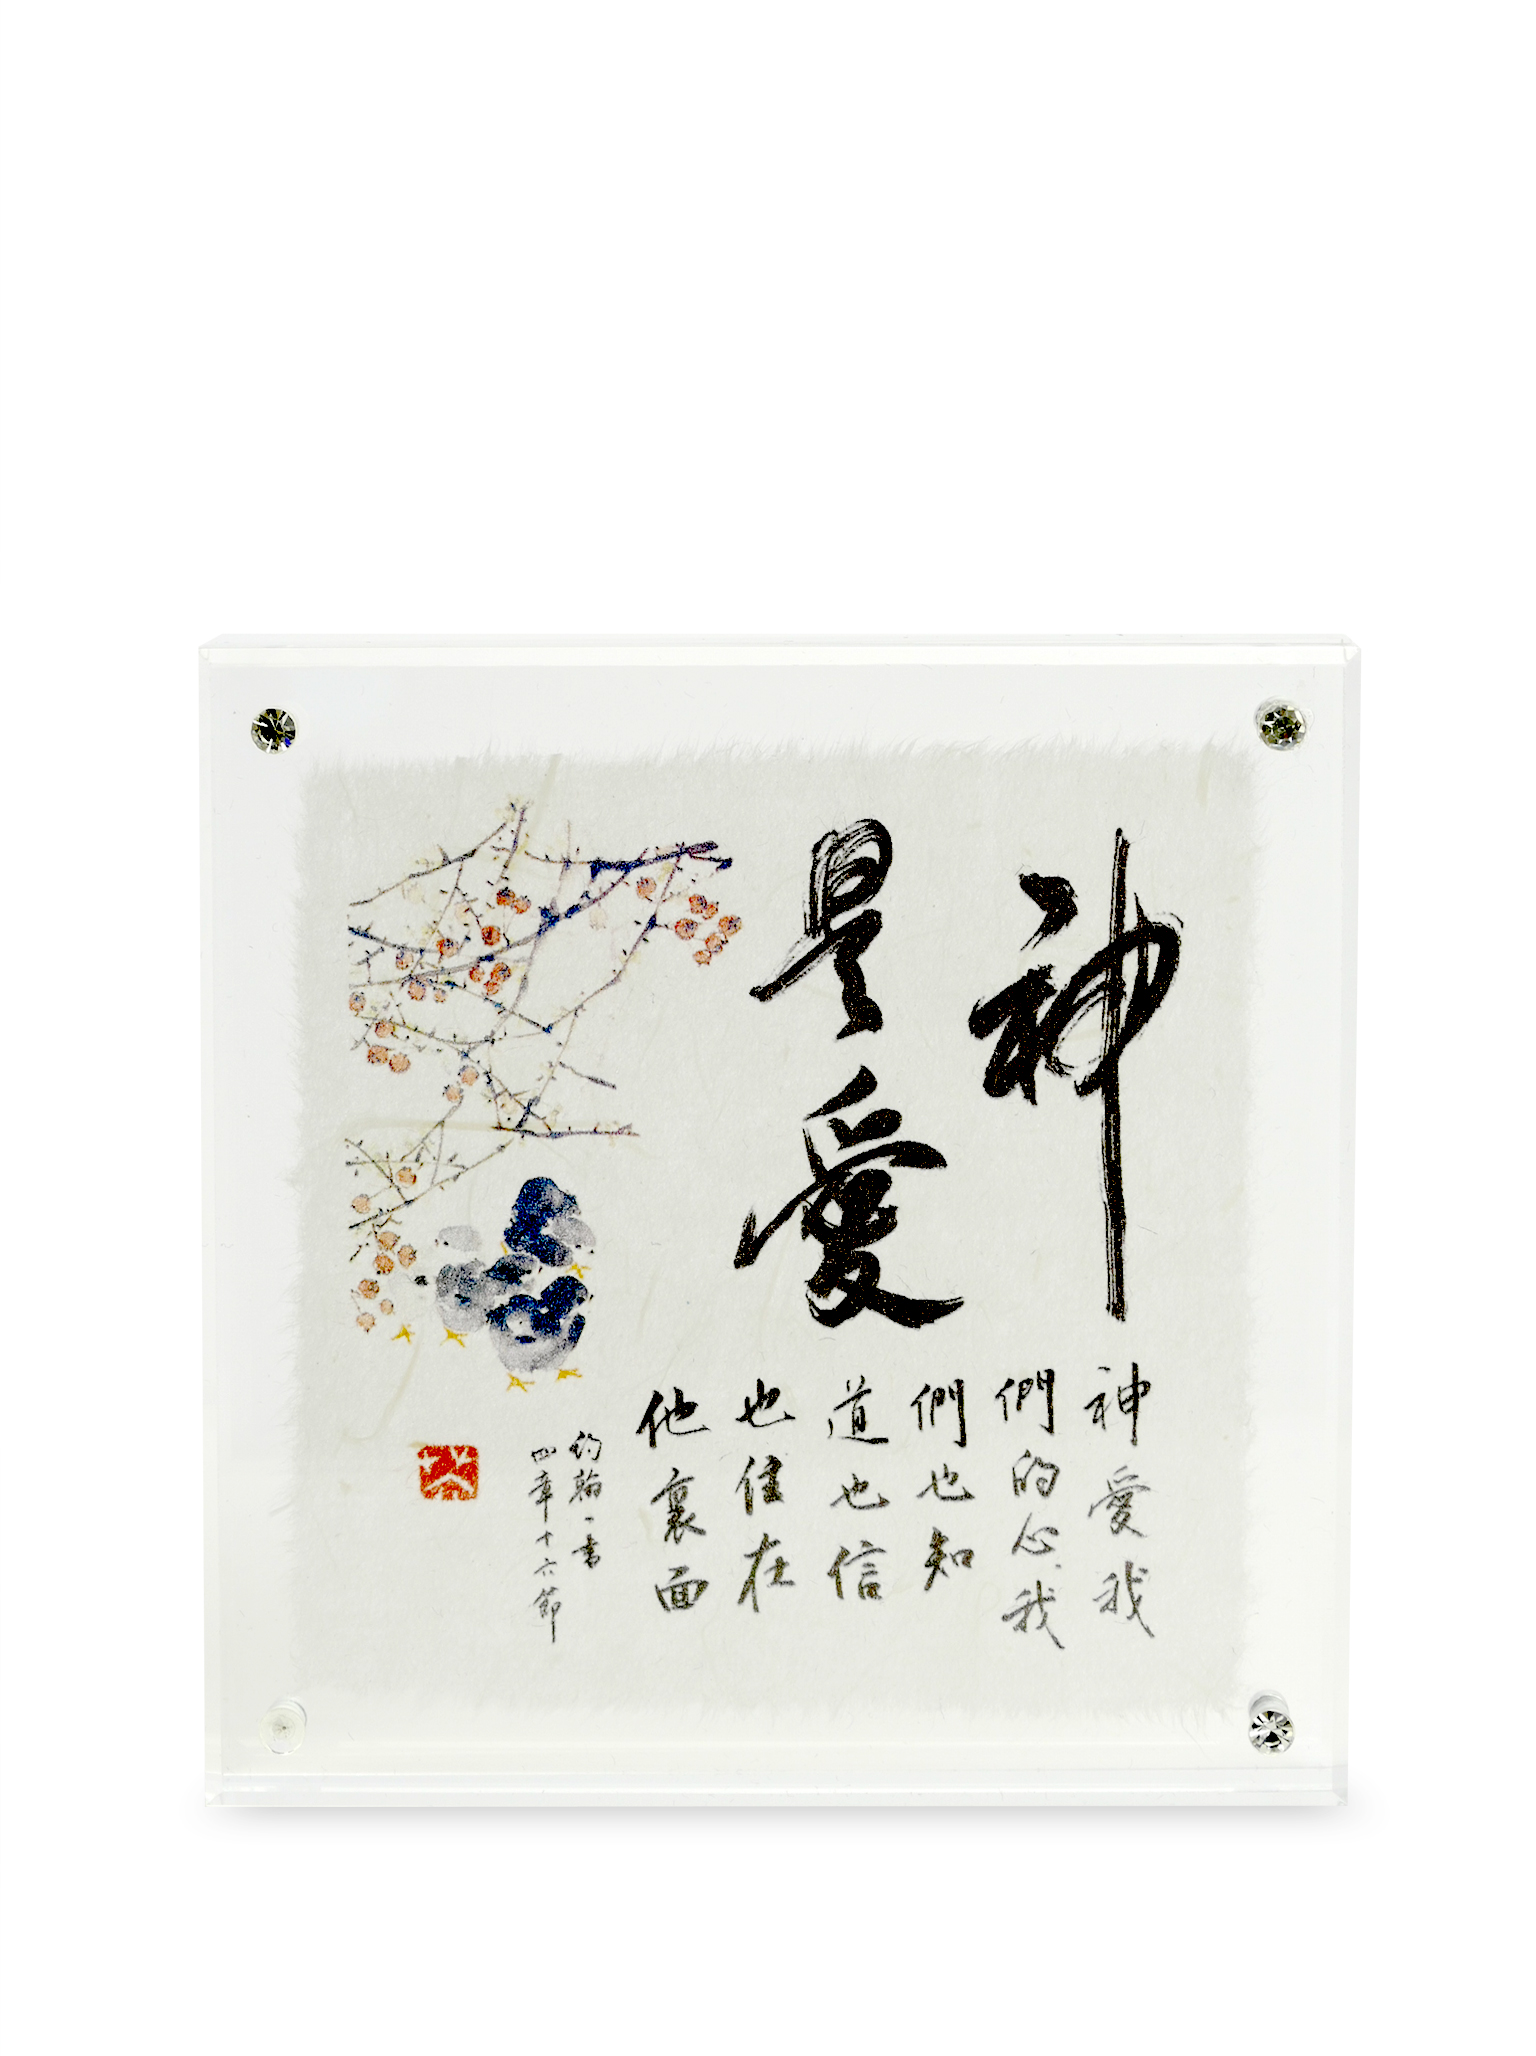 神
是愛
神愛我
們的心、我
們也知
道也信
也住在
他裏面
約翰一書
四章十六節